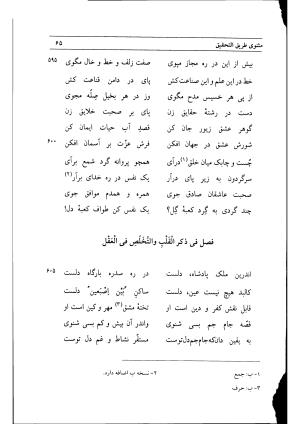 مثنوی طریق التحقیق ۶۵
بیش از این در ره مجاز مپوی صفت زلف و خط و خال مگوی ۵۹۵
خط در این علم و این صناعت کش پای در دامن قناعت کش
از پی هر خسیس مدح مگوی وز در هر بخیل صِله مجوی
دست در رشتهٔ حقایق زن پای بر صحبت خلایق زن
گوهر عشق زیور جان کن قصدِ آب حیات ایمان کن
شورش عشق در جهان افکن فرش عزّت بر آسمان افکن ۶۰۰
چُست و چابک میان خلق(۱) درآی همچو پروانه گرد شمع برآی
سرگردون به زیر پای درآر یک نفس در ره خدای برآر(۲)
صحبت عاشقان صادق جوی همره و همدم موافق جوی
چند گردی به گرد کعبهٔ گِل؟ یک نفس کن طواف کعبهٔ دل!
فصل فی ذکر القَلْبِ والتَّخَلُّصِ فی العَقْل
اندرین ملک پادشاه، دلست در ره سدره بارگاه دلست ۶۰۵
کالبد هیچ نیست عین، دلست ساکنِ "بَیْن اِصْبَعین" دلست
قابل نقش کفر و دین است او تختهٔ مشق(۳) مهر و کین است او
قصّهٔ جام جم بسی شنوی واندر آن بیش و کم بسی شنوی
به یقین دان‌که‌جام‌جم‌دل‌توست مستقرّ نشاط و غم دل توست
۱- ب: جمع ۲- نسخه ب اضافه دارد.
۳- ب: حرف